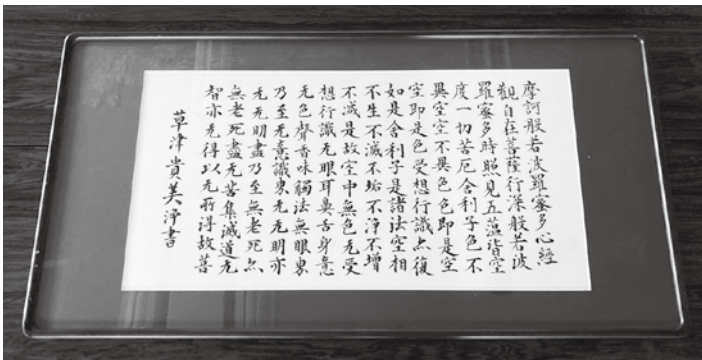 摩訶般若波羅蜜多心經
觀自在菩薩行深般若波
羅蜜多時照見五蘊皆空
度一切苦厄舍利子色不
異空空不異色色即是空
空即是色受想行識亦復
如是舍利子是諸法空相
不生不滅不垢不淨不增
不減是故空中無色无受
想行識无眼耳鼻舌身意
无色聲香味觸法無眼界
乃至无意識界无无明亦
无无明盡乃至無老死亦
無老死盡无苦集滅道无
智亦无得以无所得故菩
草津貴美淨書